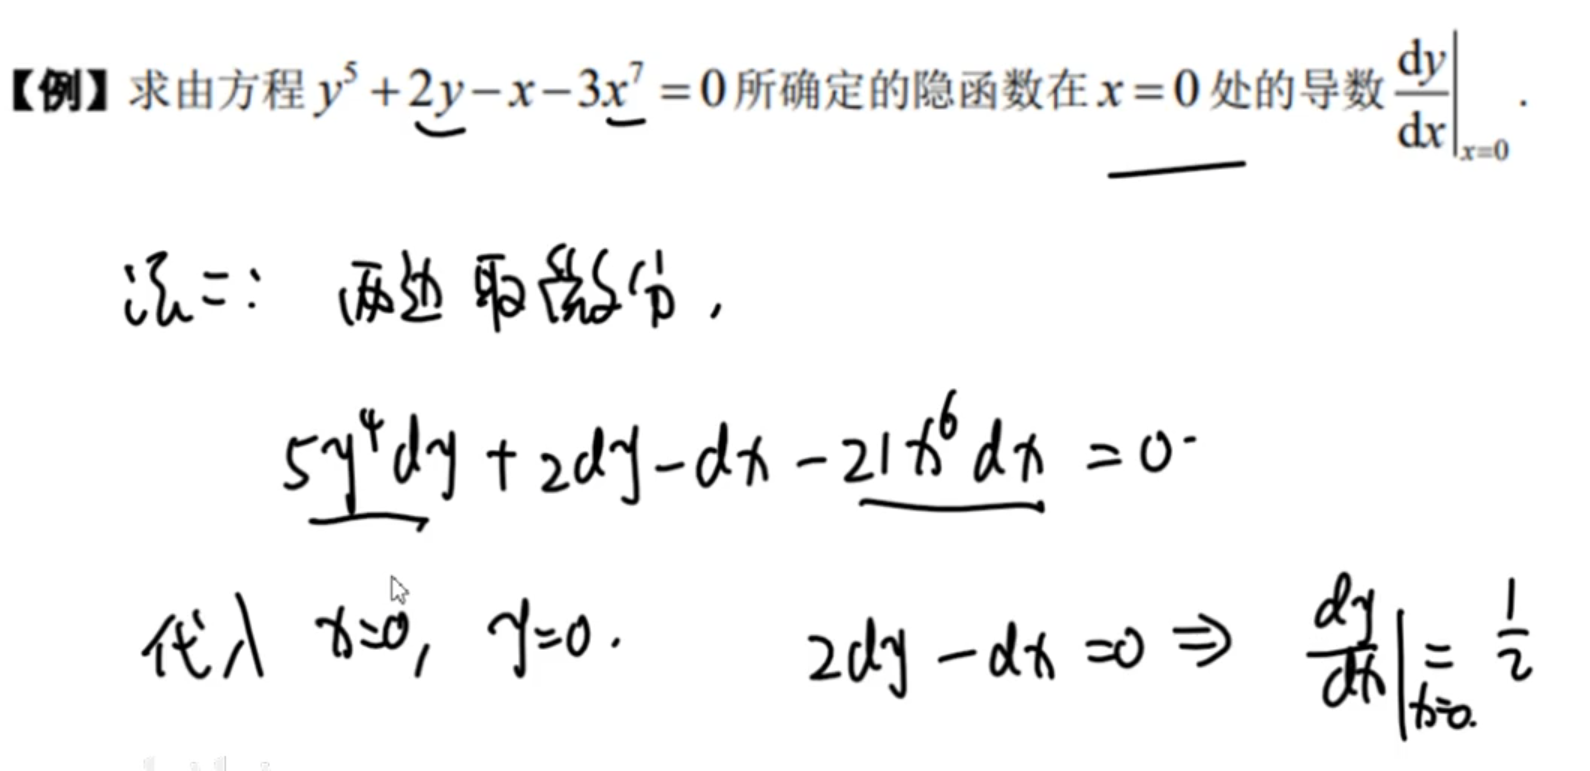 【例】求由方程 y⁵ + 2y − x − 3x⁷ = 0 所确定的隐函数在 x = 0 处的导数 dy/dx|ₓ₌₀ .
法二: 两边取微分,
5y⁴dy + 2dy − dx − 21x⁶dx = 0.
代入 x=0, y=0. 2dy − dx = 0 ⇒ dy/dx|ₓ₌₀. = 1/2